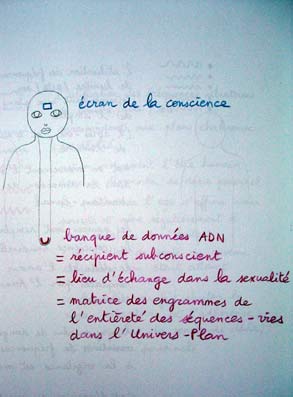 écran de la conscience
banque de données ADN
= récipient subconscient
= lieu d'échange dans la sexualité
= matrice des engrammes de
l'entièreté des séquences-vies
dans l'Univers-Plan